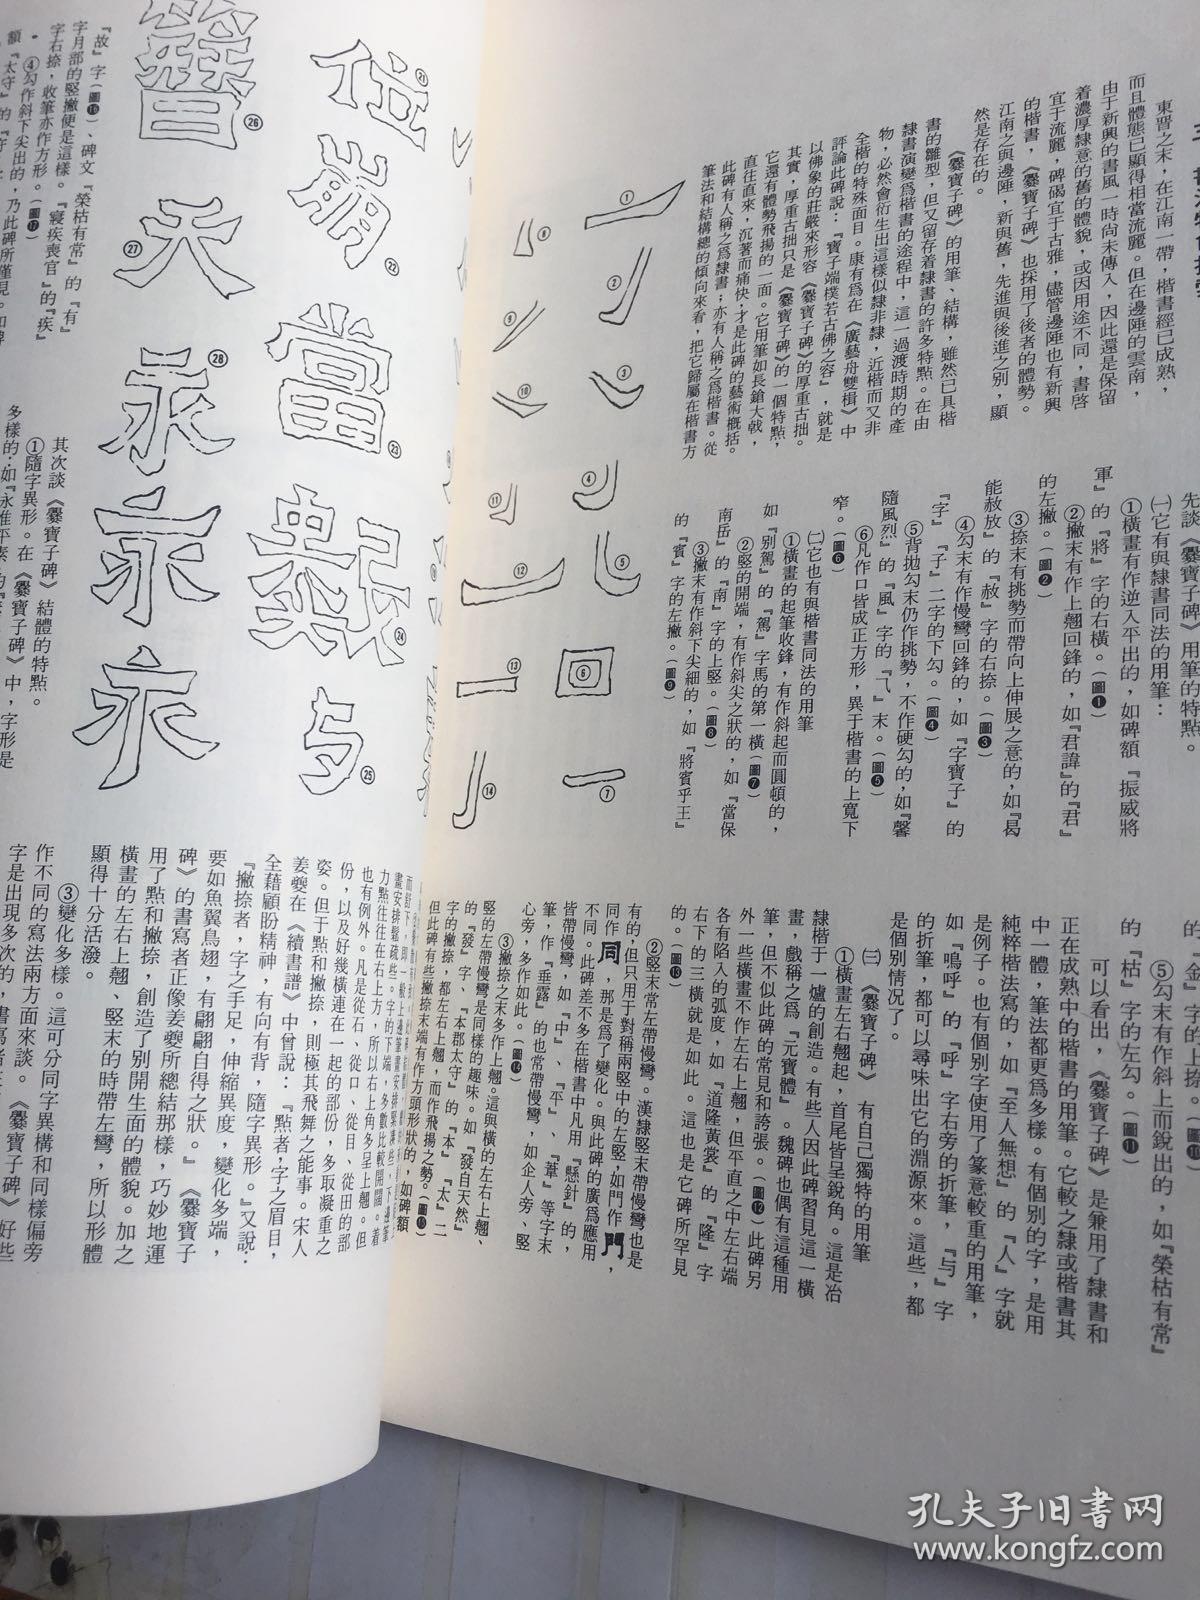 東晋之末，在江南一帶，楷書經已成熟，
而且體態已顯得相當流麗。但在邊陲的雲南，
由于新興的書風一時尚未傳入，因此還是保留
着濃厚隸意的舊的體貌，或因用途不同，書啓
宜于流麗，碑碣宜于古雅，儘管邊陲也有新興
的楷書，《爨寶子碑》也採用了後者的體勢。
江南之與邊陲，新與舊，先進與後進之别，顯
然是存在的。
《爨寶子碑》的用筆、結構，雖然已具楷
書的雛型，但又留存着隸書的許多特點。在由
隸書演變爲楷書的途程中，這一過渡時期的產
物，必然會衍生出這樣似隸非隸，近楷而又非
全楷的特殊面目。康有爲在《廣藝舟雙楫》中
評論此碑說：『寶子端樸若古佛之容』，就是
以佛象的莊嚴來形容《爨寶子碑》的厚重古拙。
其實，厚重古拙只是《爨寶子碑》的一個特點，
它還有體勢飛揚的一面。它用筆如長鎗大戟，
直往直來，沉著而痛快，才是此碑的藝術概括。
此碑有人稱之爲隸書；亦有人稱之爲楷書。從
筆法和結構總的傾向來看，把它歸屬在楷書方
先談《爨寶子碑》用筆的特點。
㈠它有與隸書同法的用筆：
①橫畫有作逆入平出的，如碑額『振威將
軍』的『將』字的右橫。（圖❶）
②撇末有作上翹回鋒的，如『君諱』的『君』
的左撇。（圖❷）
③捺末有挑勢而帶向上伸展之意的，如『曷
能赦放』的『赦』字的右捺。（圖❸）
④勾末有作慢彎回鋒的，如『字寶子』的
『字』『子』二字的下勾。（圖❹）
⑤背拋勾末仍作挑勢，不作硬勾的，如『馨
隨風烈』的『風』字的『乁』末。（圖❺）
⑥凡作口皆成正方形，異于楷書的上寬下
窄。（圖❻）
㈡它也有與楷書同法的用筆
①橫畫的起筆收鋒，有作斜起而圓頓的，
如『别駕』的『駕』字馬的第一橫（圖❼）
②竪的開端，有作斜尖之狀的，如『當保
南岳』的『南』字的上竪。（圖❽）
③撇末有作斜下尖細的，如『將賓乎王』
的『賓』字的左撇。（圖❾）
的『金』字的上捺。（圖❿）
⑤勾末有作斜上而銳出的，如『榮枯有常』
的『枯』字的左勾。（圖⓫）
可以看出，《爨寶子碑》是兼用了隸書和
正在成熟中的楷書的用筆。它較之隸或楷書其
中一體，筆法都更爲多樣。有個别的字，是用
純粹楷法寫的，如『至人無想』的『人』字就
是例子。也有個别字使用了篆意較重的用筆，
如『鳴呼』的『呼』字右旁的折筆，『与』字
的折筆，都可以尋味出它的淵源來。這些，都
是個别情况了。
㈢《爨寶子碑》有自己獨特的用筆
①橫畫左右翹起，首尾皆呈銳角。這是冶
隸楷于一爐的創造。有些人因此碑習見這一橫
畫，戲稱之爲『元寶體』。魏碑也偶有這種用
筆，但不似此碑的常見和誇張。（圖⓬）此碑另
外一些橫畫不作左右上翹，但平直之中左右端
各有陷入的弧度，如『道隆黄裳』的『隆』字
右下的三橫就是如此。這也是它碑所罕見
的。（圖⓭）
②竪末常左帶慢彎。漢隸竪末帶慢彎也是
有的，但只用于對稱兩竪中的左竪，如門作門，
同作同，那是爲了變化。與此碑的廣爲應用
不同。此碑差不多在楷書中凡用『懸針』的，
皆帶慢彎，如『中』、『平』、『葦』等字末
筆，作『垂露』的也常帶慢彎，如企人旁、竪
心旁，多作如此。（圖⓮）
③撇捺之末多作上翹。這與橫的左右上翹、
竪的左帶慢彎是同樣的趣味。如『發自天然』
的『發』字、『本郡太守』的『本』『太』二
字的撇捺，都左右上翹，而作飛揚之勢。（圖⓯）
但此碑有些撇捺末端有作方頭形狀的，如碑額
『故』字（圖⓰）、碑文『榮枯有常』的『有』
字月部的竪撇便是這樣。『寢疾喪官』的『疾』
字右捺，收筆亦作方形。（圖⓱）
④勾作斜下尖出的，乃此碑所僅見。如碑
額『太守』的『守』
畫安排鬆疏些。字的下端，多數比較開闊。着
力點往往在右上方，所以右上角多呈上翹。但
也有例外。凡是從石、從口、從目、從田的部
份，以及好幾橫連在一起的部份，多取凝重之
姿。但于點和撇捺，則極其飛舞之能事。宋人
姜夔在《續書譜》中曾說：『點者，字之眉目，
全藉顧盼精神，有向有背，隨字異形。』又說：
『撇捺者，字之手足，伸縮異度，變化多端，
要如魚翼鳥翅，有翩翩自得之狀。』《爨寶子
碑》的書寫者正像姜夔所總結那樣，巧妙地運
用了點和撇捺，創造了别開生面的體貌。加之
橫畫的左右上翹、竪末的時帶左彎，所以形體
顯得十分活潑。
③變化多樣。這可分同字異構和同樣偏旁
作不同的寫法兩方面來談。《爨寶子碑》好些
字是出現多次的，書寫者
其次談《爨寶子碑》結體的特點。
①隨字異形。在《爨寶子碑》中，字形是
多樣的：如『永惟平素』的
位
崩
當
与
天
永
① ② ③ ④ ⑤ ⑥ ⑦
⑧ ⑨ ⑩ ⑪ ⑫ ⑬ ⑭
㉑ ㉒ ㉓ ㉔ ㉕
㉖ ㉗ ㉘
孔夫子旧书网
www.kongfz.com